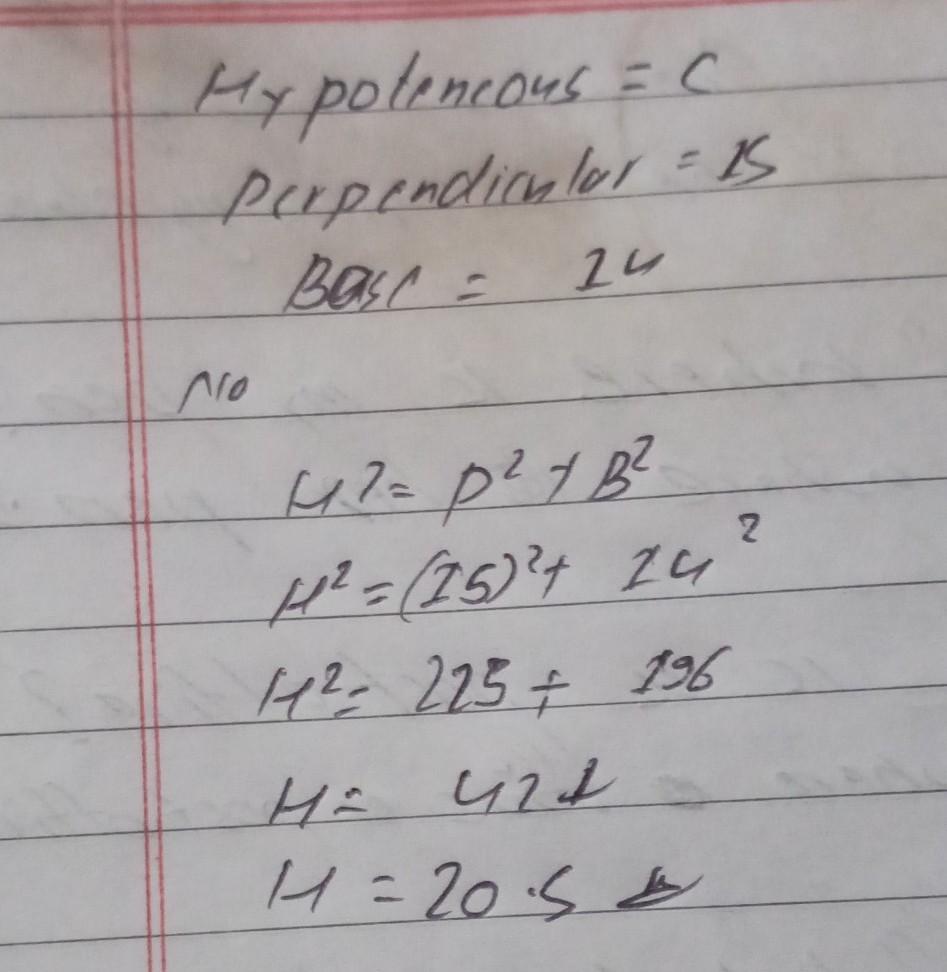 Hypoteneous = C
Perpendicular = 15
Base = 14
H² = P² + B²
H² = (15)² + 14²
H² = 225 + 196
H = 421
H = 20.5